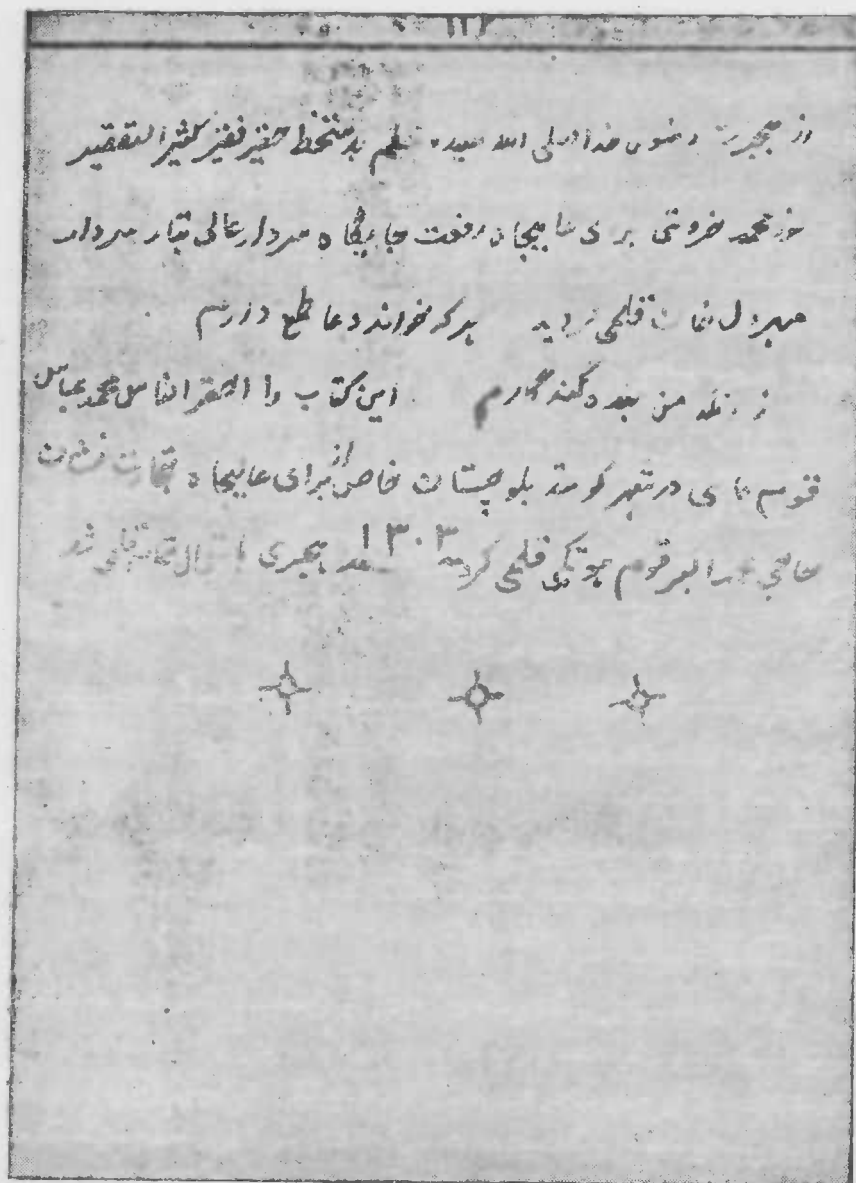 از هجرت رسول خدا صلی الله علیه بقلم بدستخط حقیر فقیر کثیر التقصیر
محمد خروتی برای عالیجاه رفعت جایگاه سردار عالی تبار سردار
مهردل خان قلمی گردید هر که خواند دعا طمع دارم
زانکه من بنده گنهگارم این کتاب را احقر الناس محمد عباس
قوم در شهر کوئته بلوچستان خاص از برای عالیجاه تجارت نشان
حاجی قوم هوتکی قلمی کرد ۱۳۰۳ هجری